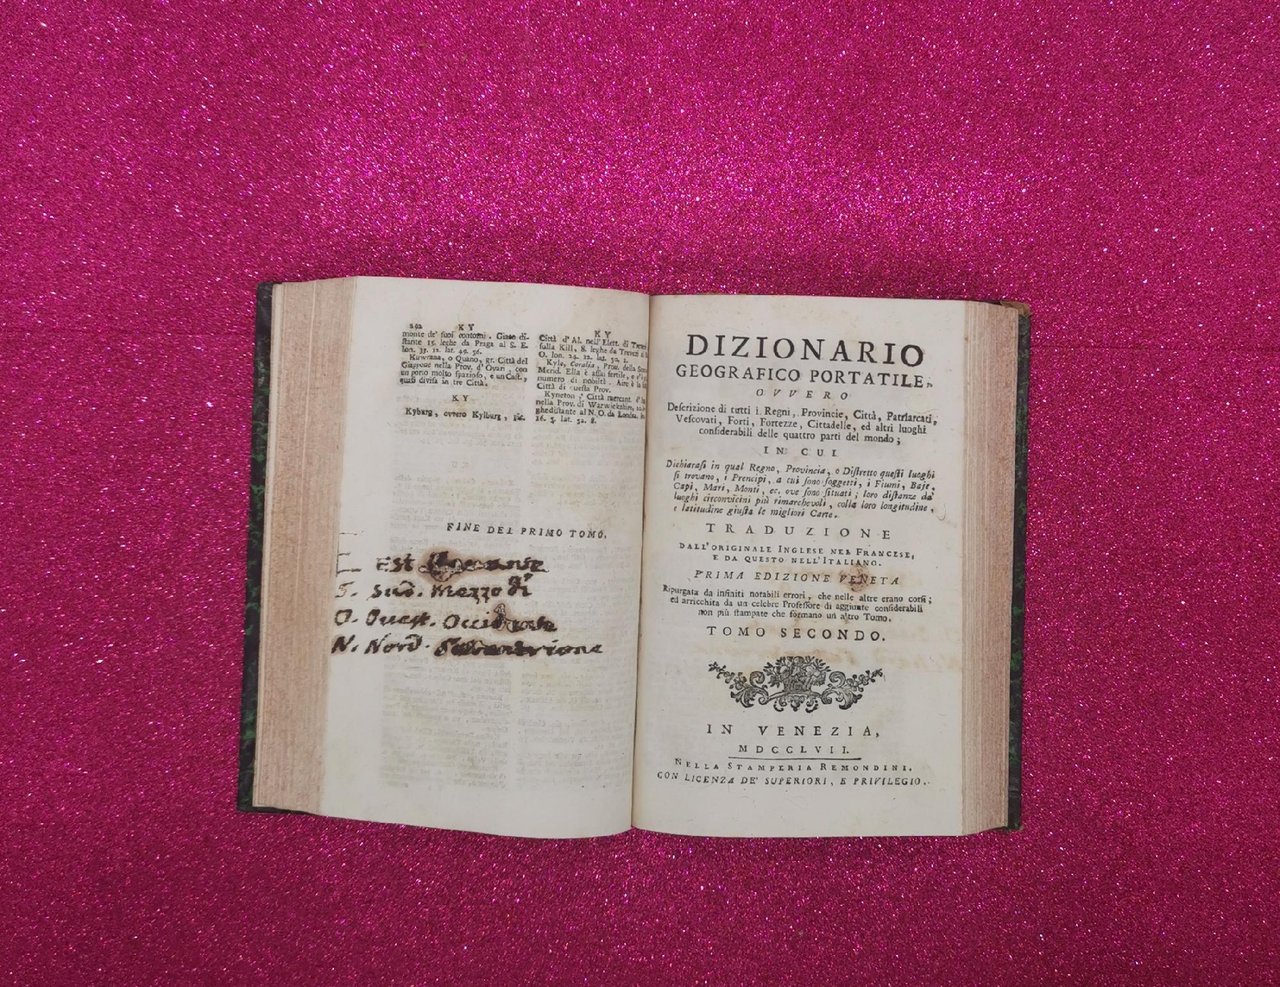 202 KY
monte de' suoi contorni. Giace di-
stante 15. leghe da Praga al S. E.
lon. 33. 12. lat. 49. 56.
Kuwrana, o Quano, gr. Città del
Giappone nella Prov. d' Ovari, con
un porto molto spazioso, e un Cast.,
quasi divisa in tre Città.
KY
Kyburg, ovvero Kylburg, pic.
KY
Città d' Al. nell' Elett. di Treveri
sulla Kill, 8. leghe da Treveri al
O. lon. 24. 12. lat. 50. 1.
Kyle, Coralia, Prov. della Scozia
Merid. Ella è assai fertile, e
numero di nobiltà. Aire è la
Città di questa Prov.
Kyneton, Città mercant. d'
nella Prov. di Warwickshire,
ghe distante al N. O. da Londra.
16. 5. lat. 52. 8.
FINE DEL PRIMO TOMO.
E. Est
S. Sud. Mezzo dì
O. Ouest. Occidente
N. Nord. Settentrione
DIZIONARIO
GEOGRAFICO PORTATILE,
OVVERO
Descrizione di tutti i Regni, Provincie, Città, Patriarcati,
Vescovati, Forti, Fortezze, Cittadelle, ed altri luoghi
considerabili delle quattro parti del mondo;
IN CUI
Dichiarasi in qual Regno, Provincia, o Distretto questi luoghi
si trovano, i Prencipi, a cui sono soggetti, i Fiumi, Baje,
Capi, Mari, Monti, ec. ove sono situati; loro distanze da'
luoghi circonvicini più rimarchevoli, colla loro longitudine,
e latitudine giusta le migliori Carte.
TRADUZIONE
DALL'ORIGINALE INGLESE NEL FRANCESE,
E DA QUESTO NELL'ITALIANO.
PRIMA EDIZIONE VENETA
Ripurgata da infiniti notabili errori, che nelle altre erano corsi;
ed arricchita da un celebre Professore di aggiunte considerabili
non più stampate che formano un altro Tomo.
TOMO SECONDO.
IN VENEZIA,
MDCCLVII.
NELLA STAMPERIA REMONDINI.
CON LICENZA DE' SUPERIORI, E PRIVILEGIO.